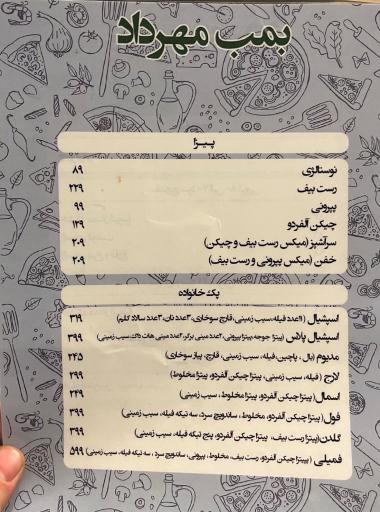 بمب مهرداد
پیتزا
نوستالژی ۸۹
رست بیف ۲۲۹
پپرونی ۹۹
چیکن آلفردو ۱۲۹
سرآشپز (میکس رست بیف و چیکن) ۲۰۹
خفن (میکس پپرونی و رست بیف) ۲۰۹
پک خانواده
اسپشیال (۶عدد فیله، سیب زمینی، قارچ سوخاری، ۳عدد نان، ۳عدد سالاد کلم) ۳۱۹
اسپشیال پلاس (پیتزا جوجه، پیتزا پپرونی، ۲عدد مینی برگر، ۲عدد مینی هات داگ، سیب زمینی) ۳۹۹
مدیوم (بال، پاچین، فیله، سیب زمینی، قارچ، پیاز سوخاری) ۲۴۵
لارج (فیله، سیب زمینی، پیتزا چیکن آلفردو، پیتزا مخلوط) ۳۹۹
اسمال (پیتزا چیکن آلفردو، پیتزا مخلوط، سیب زمینی) ۲۴۹
فول (پیتزا چیکن آلفردو، مخلوط، ساندویچ سرد، سه تیکه فیله، سیب زمینی) ۳۹۹
گلدن (پیتزا رست بیف، پیتزا چیکن آلفردو، پنج تیکه فیله، سیب زمینی) ۳۹۹
فمیلی (پیتزا چیکن آلفردو، رست بیف، مخلوط، پپرونی، ساندویچ سرد، سه تیکه فیله، سیب زمینی) ۵۹۹